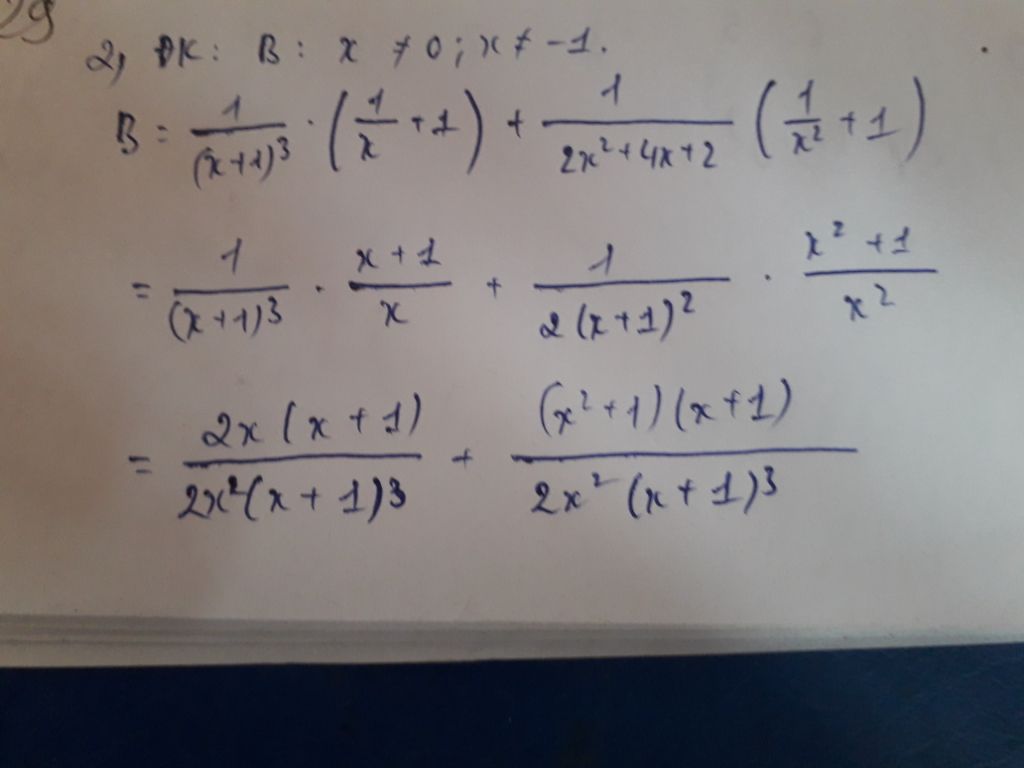 29
2, ĐK: B: x ≠ 0; x ≠ -1.
B = 1/(x+1)³ · (1/x + 1) + 1/(2x²+4x+2) (1/x² + 1)
= 1/(x+1)³ · (x+1)/x + 1/(2(x+1)²) · (x²+1)/x²
= 2x(x+1)/(2x²(x+1)³) + (x²+1)(x+1)/(2x²(x+1)³)